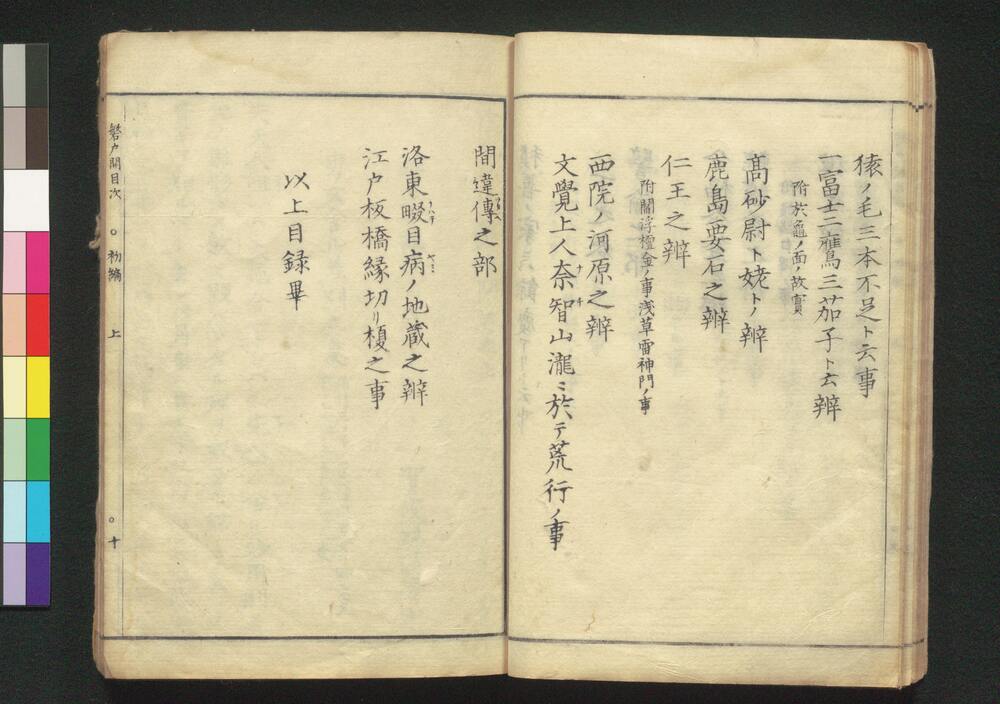 猿ノ毛三本不足ト云事
一富士二鷹三茄子ト云辨
附於龜ノ面ノ故實
髙砂ノ尉ト姥トノ辨
鹿島要石之辨
仁王之辨
附閻浮檀金ノ事浅草雷神門ノ事
西院ノ河原之辨
文覺上人奈智山瀧ニ於テ荒行ノ事
間違傳之部
洛東畷目病ノ地蔵之辨
江戸板橋縁切リ榎之事
以上目録畢
磐戸開目次 初編 上 十